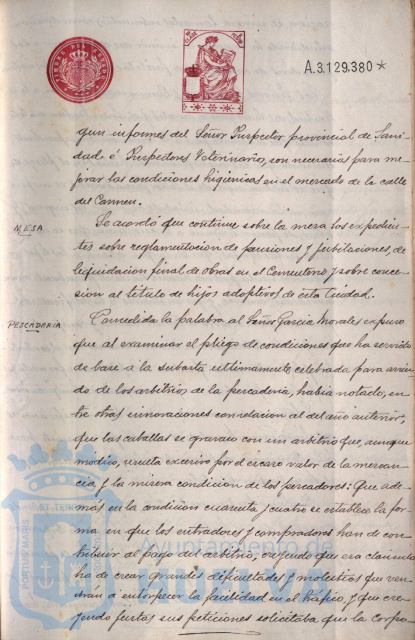 A.3.129.380 *
gun informes del Señor Inspector provincial de Sani-
dad é Inspectores Veterinarios, son necesarias para me-
jorar las condiciones higiénicas en el mercado de la calle
del Carmen.
MESA
Se acordó que continúe sobre la mesa los expedien-
tes sobre reglamentacion de pensiones y jubilaciones, de
liquidacion final de obras en el Cementerio y sobre conce-
sion al título de hijos adoptivos de esta Ciudad.
PESCADERIA
Concedida la palabra al Señor Garcia Morales expuso
que al examinar el pliego de condiciones que ha servido
de base a la subasta ultimamente celebrada para arrien-
do de los arbitrios de la pescaderia, habia notado, en-
tre otras innovaciones con relacion al del año anterior,
que las caballas se gravan con un arbitrio que, aunque
módico, resulta excesivo por el escaso valor de la mercan-
cia y la misera condicion de los pescadores: Que ade-
más en la condicion cuarenta y cuatro se establece la for-
ma en que los entradores y compradores han de con-
tribuir al pago del arbitrio, creyendo que esa clausula
ha de crear grandes dificultades y molestias que ven-
dran a entorpecer la facilidad en el tráfico, y que cre-
yendo justas sus peticiones solicitaba que la Corpo-
PORTUS MAGNIS